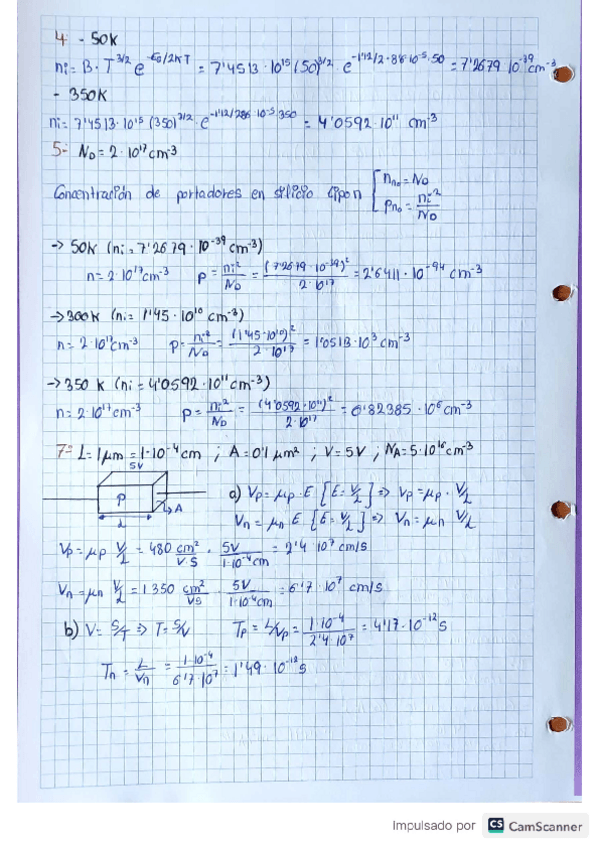 4. - 50K
ni = B · T^3/2 e^-EG/2KT = 7'4513 · 10^15 (50)^3/2 · e^-1'12/2·86·10^-5·50 = 7'2679 10^-39 cm^-3
- 350K
ni = 7'4513 · 10^15 (350)^3/2 · e^-1'12/286·10^-5·350 = 4'0592 · 10^11 cm^-3
5.- ND = 2 · 10^17 cm^-3
Concentración de portadores en silicio tipo n { nno = ND
pno = ni^2/ND
-> 50K (ni = 7'2679 · 10^-39 cm^-3)
n = 2·10^17 cm^-3 p = ni^2/ND = (7'2679 · 10^-39)^2/2·10^17 = 2'6411 · 10^-94 cm^-3
-> 300K (ni = 1'45 · 10^10 cm^-3)
n = 2·10^17 cm^-3 p = ni^2/ND = (1'45·10^10)^2/2·10^17 = 1'0513·10^3 cm^-3
-> 350 K (ni = 4'0592 · 10^11 cm^-3)
n = 2·10^17 cm^-3 p = ni^2/ND = (4'0592·10^11)^2/2·10^17 = 6'82385 · 10^6 cm^-3
7.- L = 1 μm = 1·10^-4 cm ; A = 0'1 μm^2 ; V = 5V ; NA = 5·10^16 cm^-3
5V
P
A
L
a) Vp = μp · E [E = V/L] => Vp = μp · V/L
Vn = μn E [E = V/L] => Vn = μn V/L
Vp = μp V/L = 480 cm^2/V·S · 5V/1·10^-4 cm = 2'4 10^7 cm/s
Vn = μn V/L = 1350 cm^2/VS · 5V/1·10^-4 cm = 6'7 · 10^7 cm/s
b) V = S/T => T = S/V Tp = L/Vp = 1·10^-4/2'4·10^7 = 4'17·10^-12 s
Tn = L/Vn = 1·10^-4/6'7·10^7 = 1'49 · 10^-12 s
Impulsado por CS CamScanner